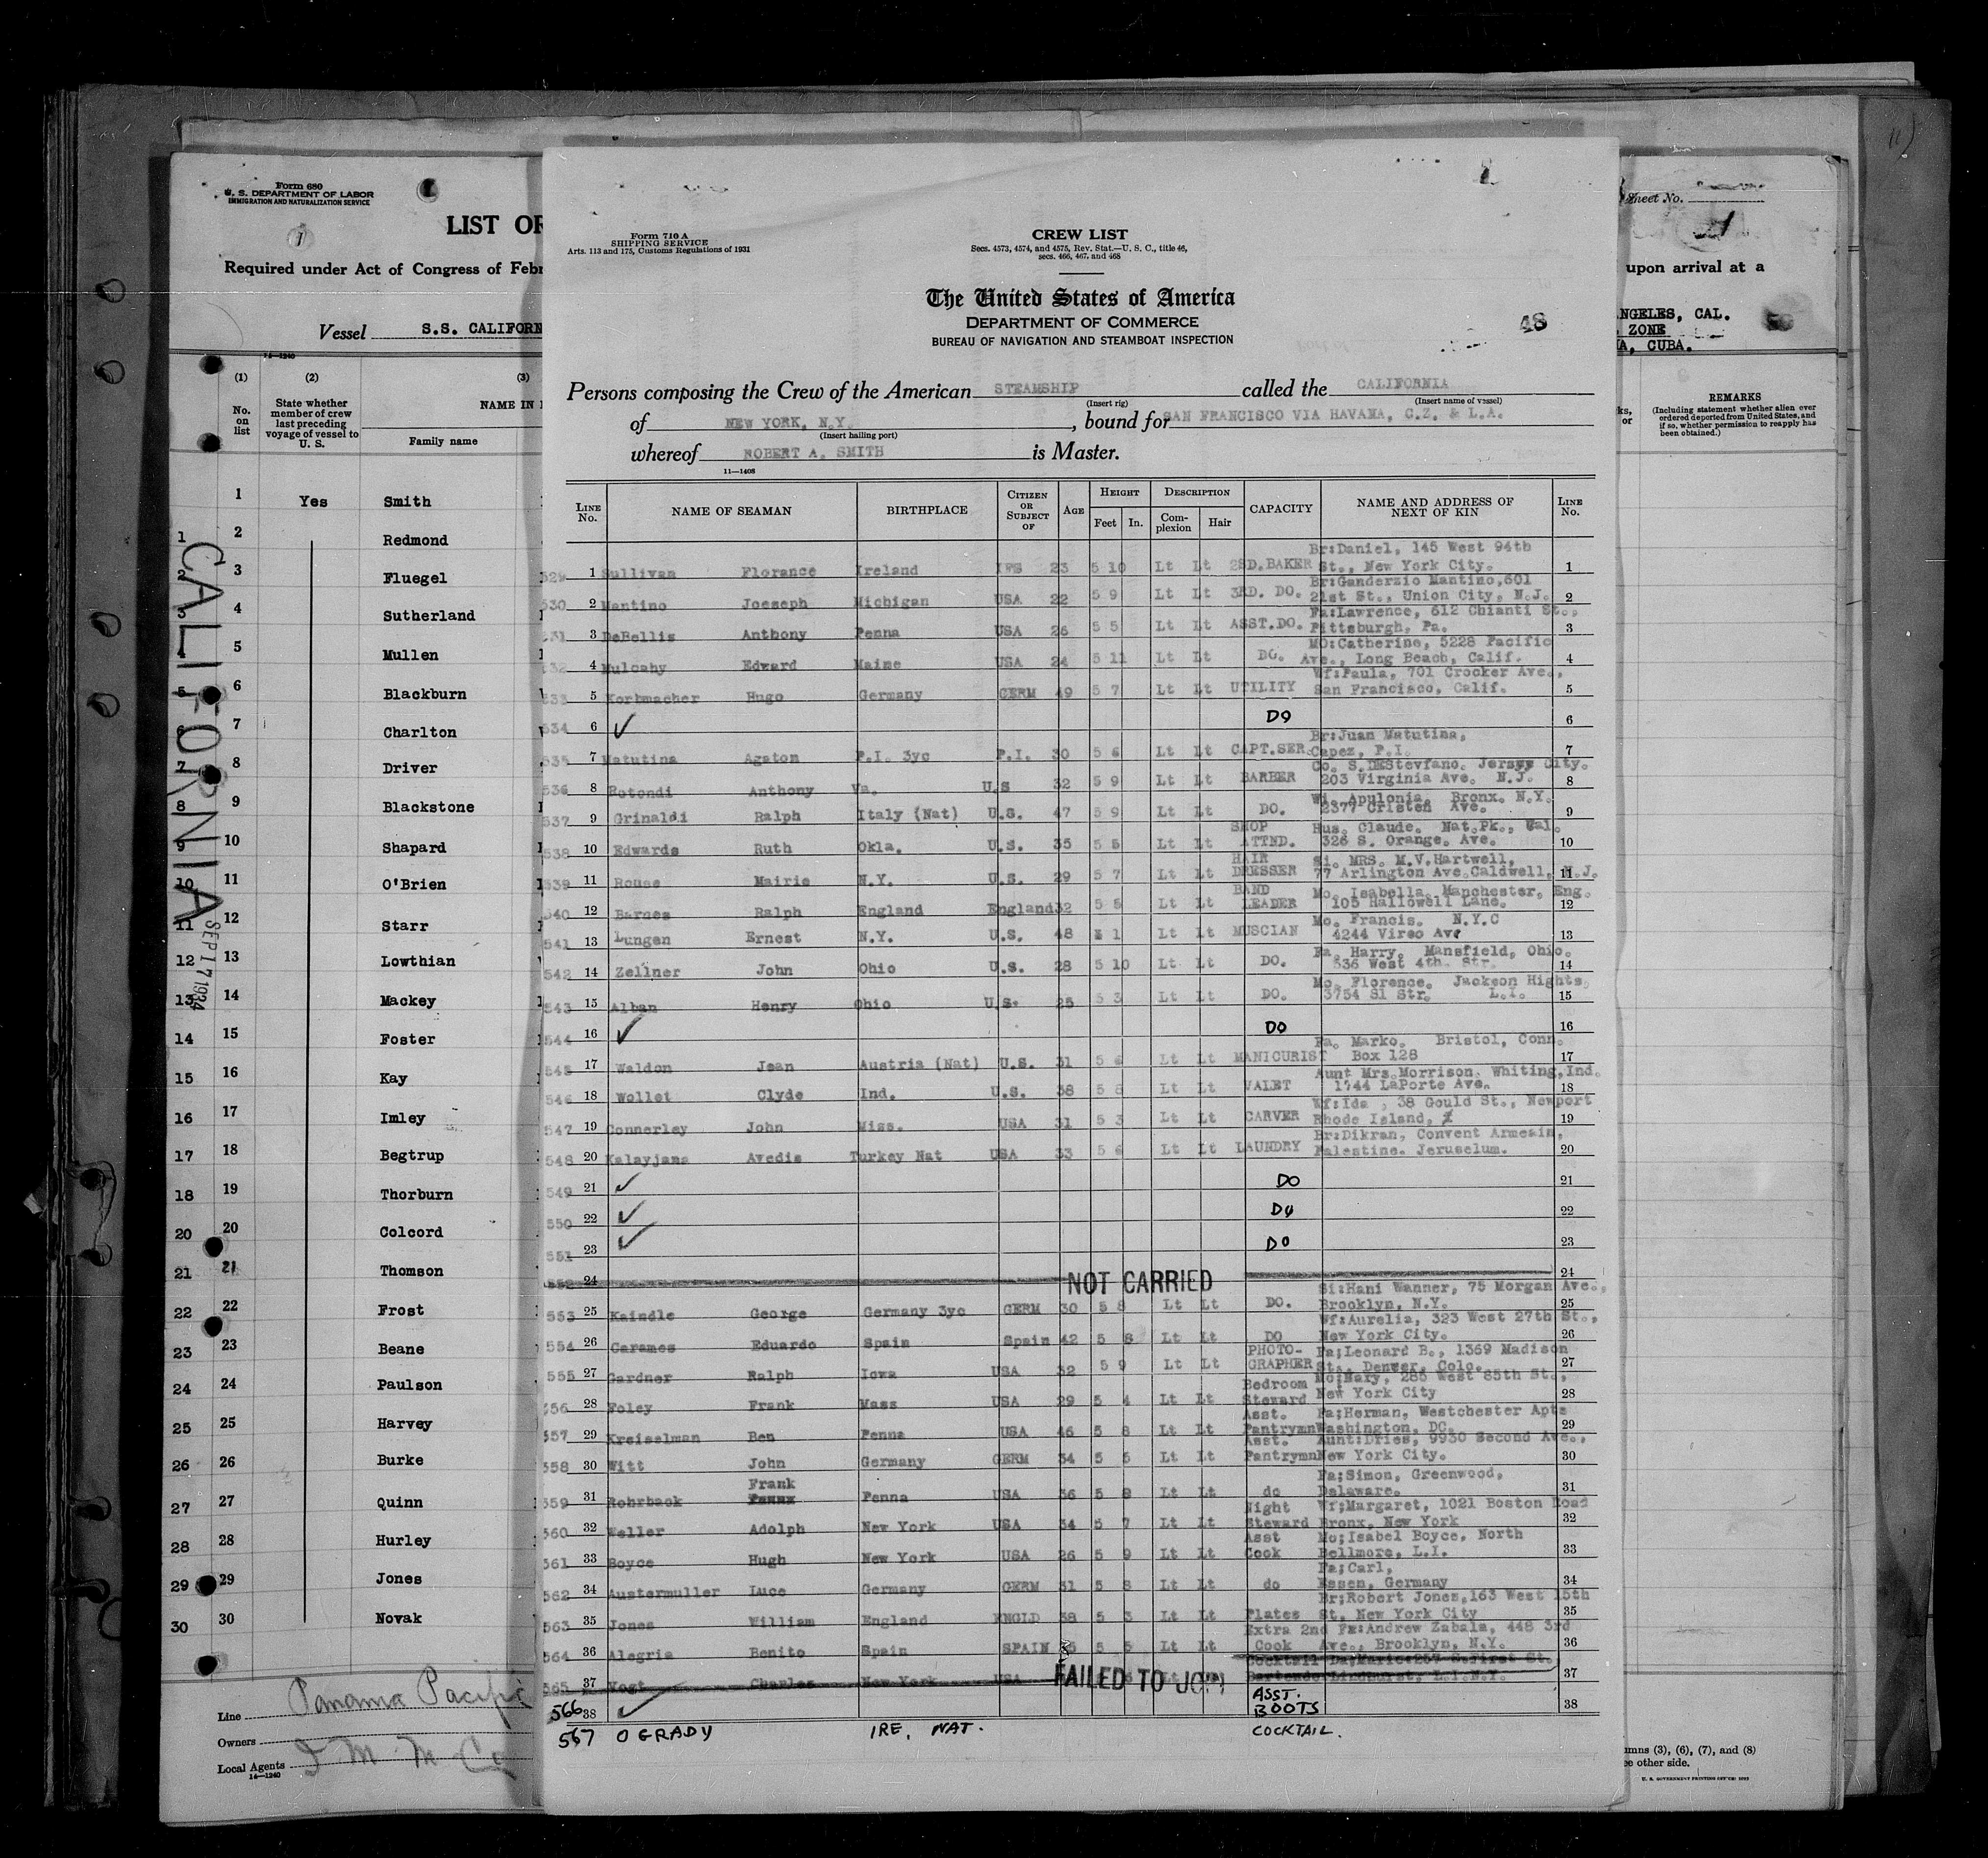 Form 680
U. S. DEPARTMENT OF LABOR
IMMIGRATION AND NATURALIZATION SERVICE
LIST OF
Required under Act of Congress of Febr
Vessel S.S. CALIFORN
14—1240
(1) (2) (3)
No. on list
State whether member of crew last preceding voyage of vessel to U. S.
NAME IN
Family name
1 Yes Smith
1 2 Redmond
2 3 Fluegel
3 4 Sutherland
4 5 Mullen
5 6 Blackburn
6 7 Charlton
7 8 Driver
8 9 Blackstone
9 10 Shapard
10 11 O'Brien
11 12 Starr
12 13 Lowthian
13 14 Mackey
14 15 Foster
15 16 Kay
16 17 Imley
17 18 Begtrup
18 19 Thorburn
20 20 Colcord
21 21 Thomson
22 22 Frost
23 23 Beane
24 24 Paulson
25 25 Harvey
26 26 Burke
27 27 Quinn
28 28 Hurley
29 29 Jones
30 30 Novak
CALIFORNIA
SEP 17 1934
Line Panama Pacific
Owners
Local Agents I M M Co
14—1240
Form 710 A
SHIPPING SERVICE
Arts. 113 and 175, Customs Regulations of 1931
CREW LIST
Secs. 4573, 4574, and 4575, Rev. Stat.—U. S. C., title 46,
secs. 466, 467, and 468
The United States of America
DEPARTMENT OF COMMERCE
BUREAU OF NAVIGATION AND STEAMBOAT INSPECTION
48
Persons composing the Crew of the American STEAMSHIP called the CALIFORNIA
(Insert rig) (Insert name of vessel)
of NEW YORK, N.Y. , bound for SAN FRANCISCO VIA HAVANA, C.Z. & L.A.
(Insert hailing port)
whereof ROBERT A. SMITH is Master.
11—1408
LINE No. NAME OF SEAMAN BIRTHPLACE CITIZEN OR SUBJECT OF AGE HEIGHT Feet In. DESCRIPTION Complexion Hair CAPACITY NAME AND ADDRESS OF NEXT OF KIN LINE No.
Br:Daniel, 145 West 94th
529 1 Sullivan Florance Ireland IFS 23 5 10 Lt Lt 2SD.BAKER St., New York City. 1
Br:Ganderzio Mantino,601
530 2 Mantino Joeseph Michigan USA 22 5 9 Lt Lt 3RD. DO. 21st St., Union City, N.J. 2
Fa:Lawrence, 612 Chianti St.,
531 3 DeBellis Anthony Penna USA 26 5 5 Lt Lt ASST.DO. Pittsburgh, Pa. 3
MO:Catherine, 5228 Pacific
532 4 Mulcahy Edward Maine USA 24 5 11 Lt Lt DO. Ave., Long Beach, Calif. 4
Wf:Paula, 701 Crocker Ave.,
533 5 Korbmacher Hugo Germany GERM 49 5 7 Lt Lt UTILITY San Francisco, Calif. 5
534 6 ✓ DO 6
Br:Juan Matutina,
535 7 Matutina Agaton P.I. 3yc P.I. 30 5 6 Lt Lt CAPT.SER. Capez, P.I. 7
Co. S.DEStevfano. Jersey City.
536 8 Rotondi Anthony Va. U.S 32 5 9 Lt Lt BARBER 203 Virginia Ave. N.J. 8
Wi. Apulonia. Bronx. N.Y.
537 9 Grinaldi Ralph Italy (Nat) U.S. 47 5 9 Lt Lt DO. 2377 Cristen Ave. 9
SHOP Hus. Claude. Nat.Pk., Cal.
538 10 Edwards Ruth Okla. U.S. 35 5 5 Lt Lt ATTND. 326 S. Orange. Ave. 10
HAIR Si. MRS. M.V.Hartwell,
539 11 Rouse Mairie N.Y. U.S. 29 5 7 Lt Lt DRESSER 77 Arlington Ave.Caldwell, N.J. 11
BAND Mo. Isabella. Manchester, Eng.
540 12 Barnes Ralph England England 32 5 8 Lt Lt LEADER 105 Hallowell Lane. 12
Mo. Francis. N.Y.C
541 13 Lungen Ernest N.Y. U.S. 48 1 Lt Lt MUSCIAN 4244 Vireo Ave 13
Fa. Harry. Mansfield, Ohio.
542 14 Zellner John Ohio U.S. 28 5 10 Lt Lt DO. 536 West 4th. Str. 14
Mo. Florence. Jackson Hights,
543 15 Alban Henry Ohio U.S. 25 5 3 Lt Lt DO. 3754 81 Str. L.I. 15
544 16 ✓ DO 16
Fa. Marko. Bristol, Conn.
545 17 Waldon Jean Austria (Nat) U.S. 31 5 6 Lt Lt MANICURIST Box 128 17
Aunt Mrs.Morrison. Whiting,Ind.
546 18 Wollet Clyde Ind. U.S. 38 5 8 Lt Lt VALET 1744 LaPorte Ave. 18
Wf:Ida , 38 Gould St., Newport
547 19 Connerley John Miss. USA 31 5 3 Lt Lt CARVER Rhode Island, 19
Br:Dikran, Convent Armeain,
548 20 Kalayjans Avedis Turkey Nat USA 33 5 6 Lt Lt LAUNDRY Palestine. Jeruselum. 20
549 21 ✓ DO 21
550 22 ✓ DO 22
551 23 ✓ DO 23
552 24 NOT CARRIED 24
Si:Hani Wanner, 75 Morgan Ave.,
553 25 Kaindle George Germany 3yc GERM 30 5 8 Lt Lt DO. Brooklyn, N.Y. 25
Wf:Aurelia, 323 West 27th St.,
554 26 Carames Eduardo Spain Spain 42 5 8 Lt Lt DO New York City. 26
PHOTO- Fa;Leonard B., 1369 Madison
555 27 Gardner Ralph Iowa USA 32 5 9 Lt Lt GRAPHER St., Denver, Colo. 27
Bedroom Mo;Mary, 285 West 85th St.,
556 28 Foley Frank Mass USA 29 5 4 Lt Lt Steward New York City 28
Asst. Fa;Herman, Westchester Apts
557 29 Kreiselman Ben Penna USA 46 5 8 Lt Lt Pantrymn Washington, DC. 29
Asst. Aunt:Dries, 9930 Second Ave.,
558 30 Witt John Germany GERM 34 5 5 Lt Lt Pantrymn New York City. 30
Frank Fa;Simon, Greenwood,
559 31 Rohrback Penna USA 36 5 8 Lt Lt do Delaware. 31
Night Wf;Margaret, 1021 Boston Road
560 32 Weller Adolph New York USA 34 5 7 Lt Lt Steward Bronx, New York 32
Asst Mo;Isabel Boyce, North
561 33 Boyce Hugh New York USA 26 5 9 Lt Lt Cook Bellmore, L.I. 33
Fa;Carl,
562 34 Austermuller Luce Germany GERM 31 5 8 Lt Lt do Essen, Germany 34
Br;Robert Jones,163 West 15th
563 35 Jones William England ENGLD 38 5 3 Lt Lt Plates St, New York City 35
Extra 2nd Fa:Andrew Zabala, 448 3rd
564 36 Alegria Benito Spain SPAIN 5 5 Lt Lt Cook Ave., Brooklyn, N.Y. 36
Cocktail Da;Marie:257 S.First St.
565 37 Vogt Charles New York USA FAILED TO JOIN Bartender Lindhurst, L.I.N.Y. 37
566 38 ✓ ASST. BOOTS 38
567 O GRADY IRE. NAT. COCKTAIL.
Sheet No.
1
upon arrival at a
NGELES, CAL.
ZONE
A, CUBA.
REMARKS
(Including statement whether alien ever ordered deported from United States, and if so, whether permission to reapply has been obtained.)
ks,
or
umns (3), (6), (7), and (8)
ee other side.
U. S. GOVERNMENT PRINTING OFFICE
11)